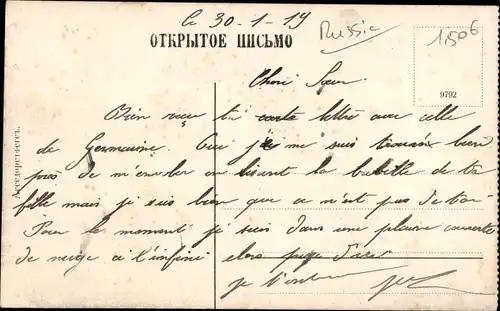 Le 30-1-19
Russie
1,50€
ОТКРЫТОЕ ПИСЬМО
9792
Chère Sœur
Bien reçu ta carte lettre avec celle
de Germaine. Oui je me suis trouvé bien
près de m'envoler en lisant la babille de ta
fille mais je sais bien que ce n'est pas de ton
Pour le moment je suis dans une plaine couverte
de neige à l'infini alors
je t'embrasse